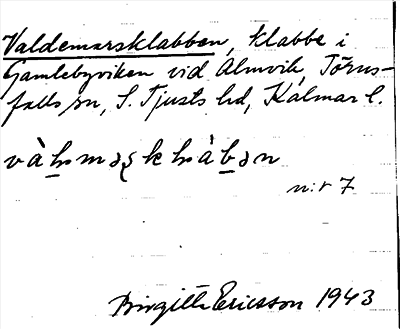 Valdemarsklabben, klabbe i
Gamlebyviken vid Almvik, Törns-
falls sn, S. Tjusts hd, Kalmar l.
n:r 7
Birgitta Ericsson 1943